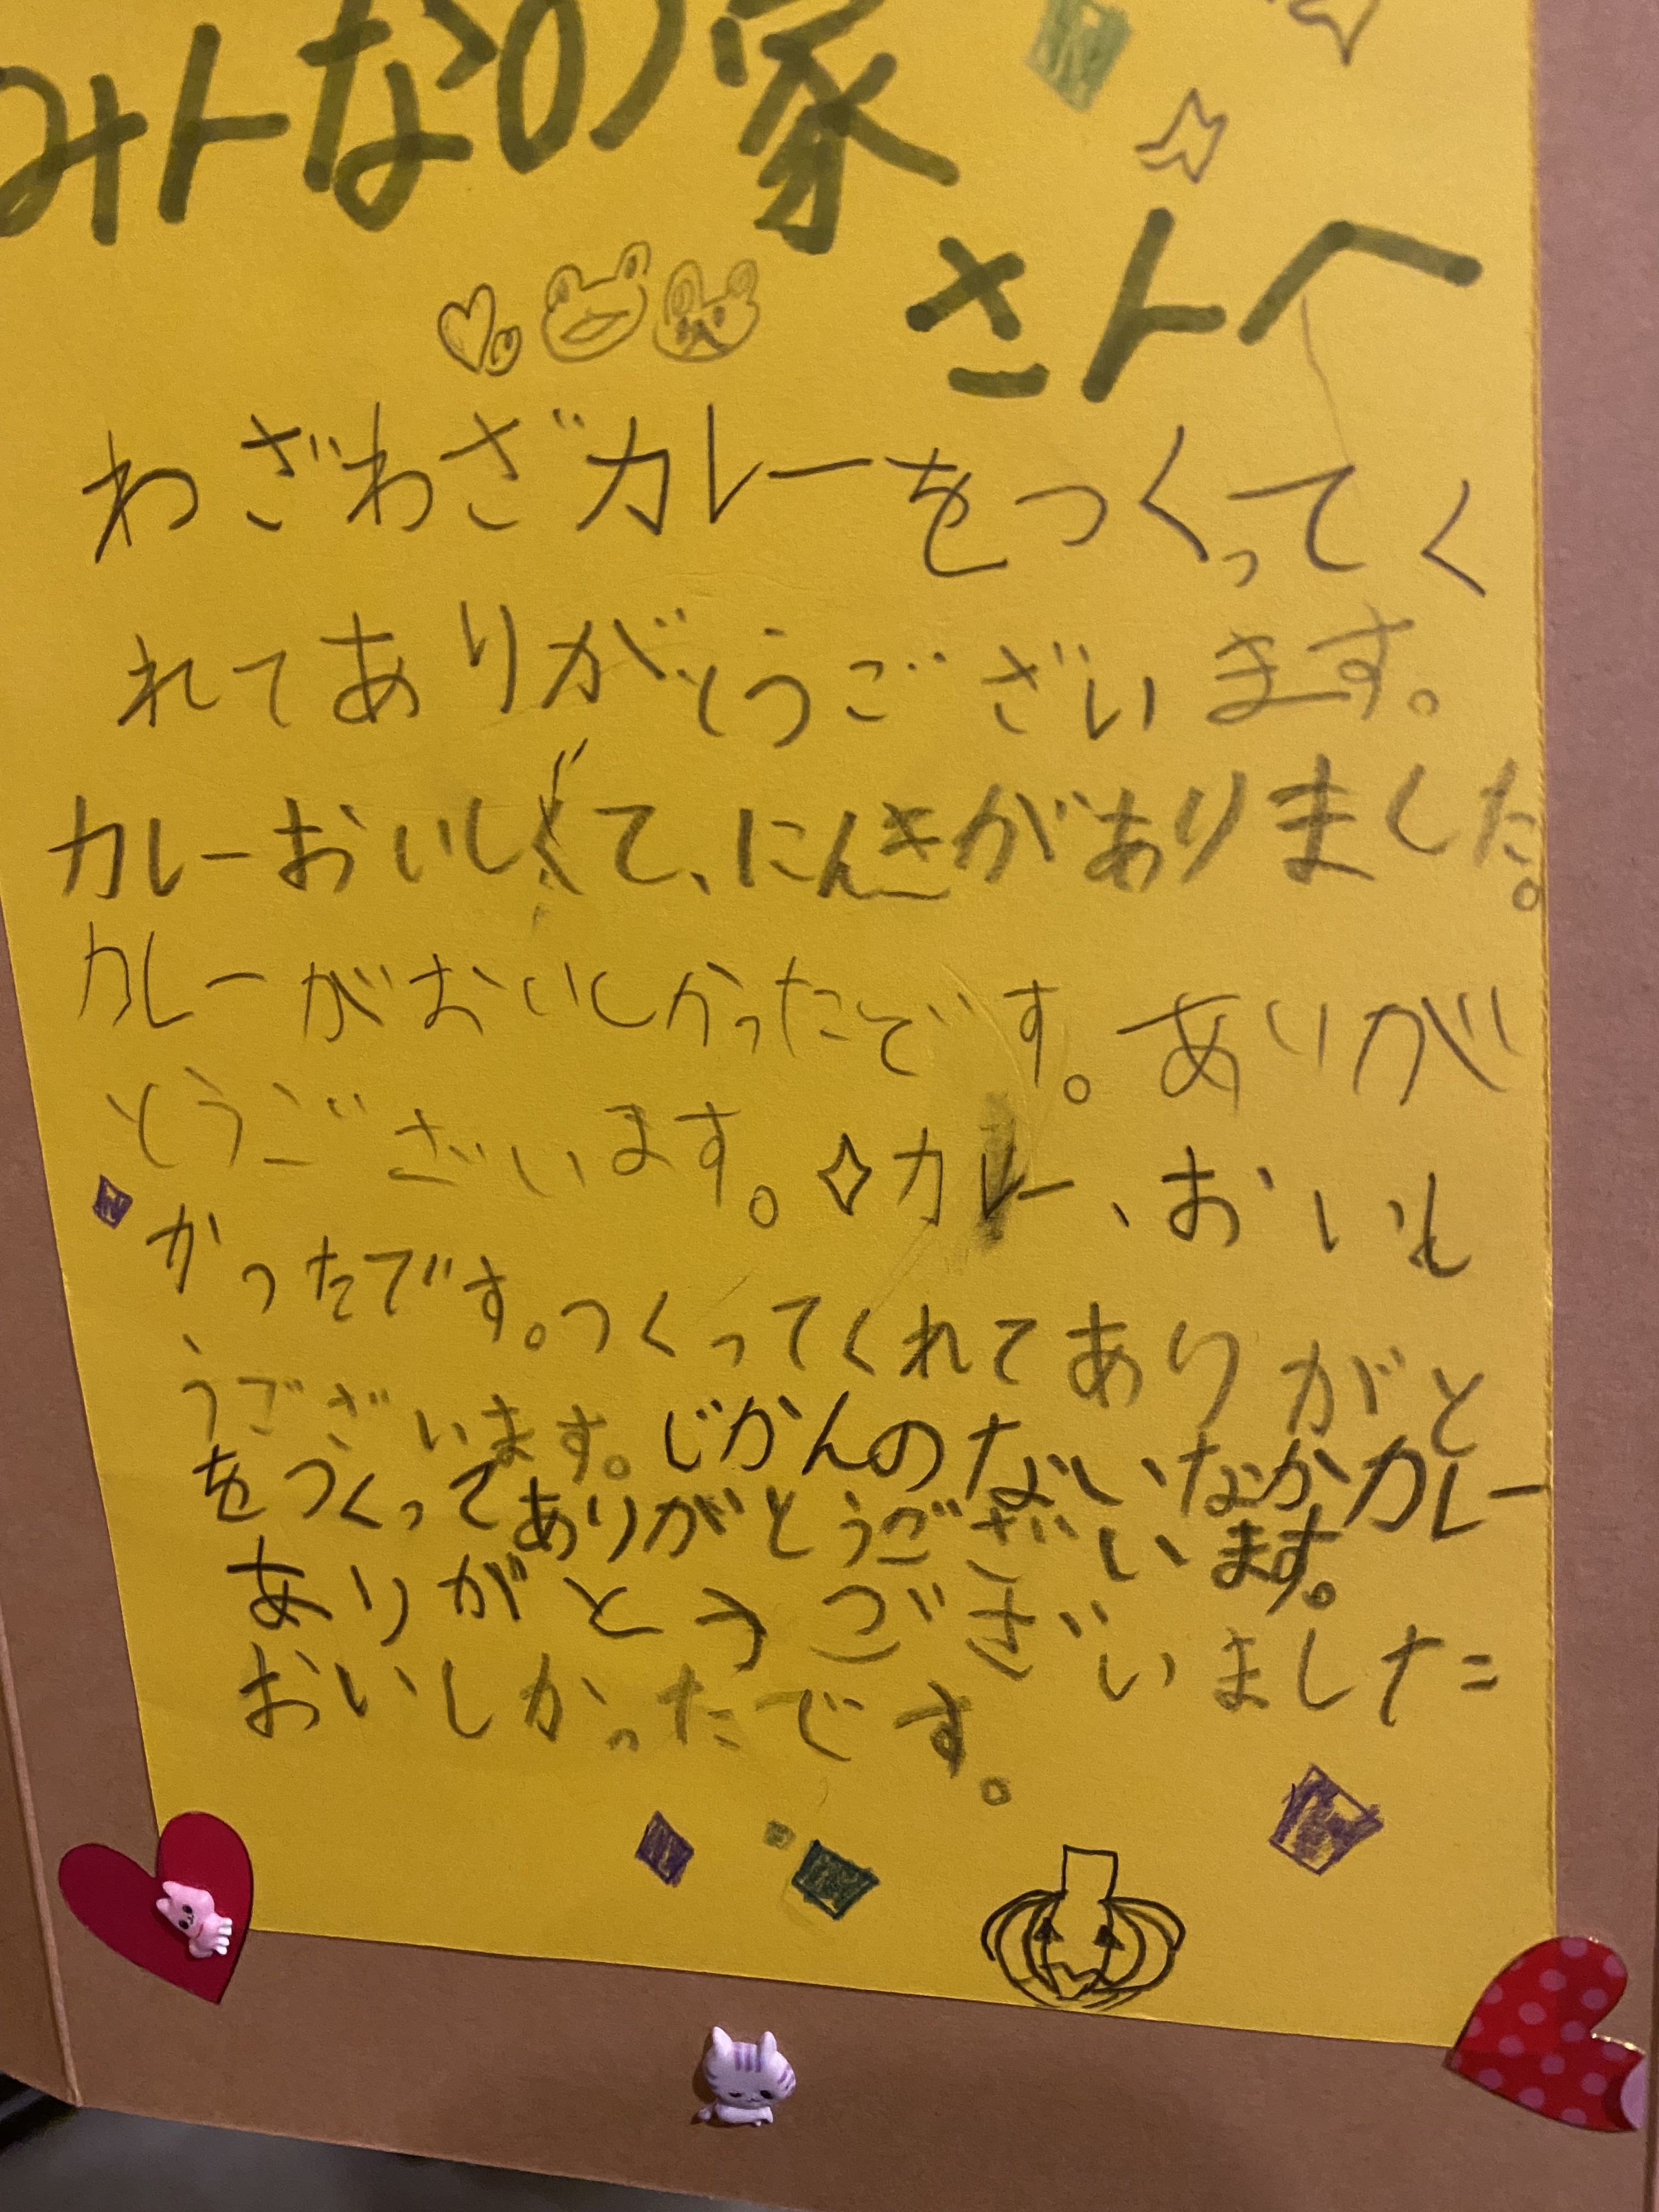 みんなの家
さんへ
わざわざカレーをつくってく
れてありがとうございます。
カレーおいしくて、にんきがありました。
カレーがおいしかったです。ありが
とうございます。カレー、おいし
かったです。つくってくれてありがと
うございます。じかんのないなかカレー
をつくってありがとうございます。
ありがとうございました
おいしかったです。